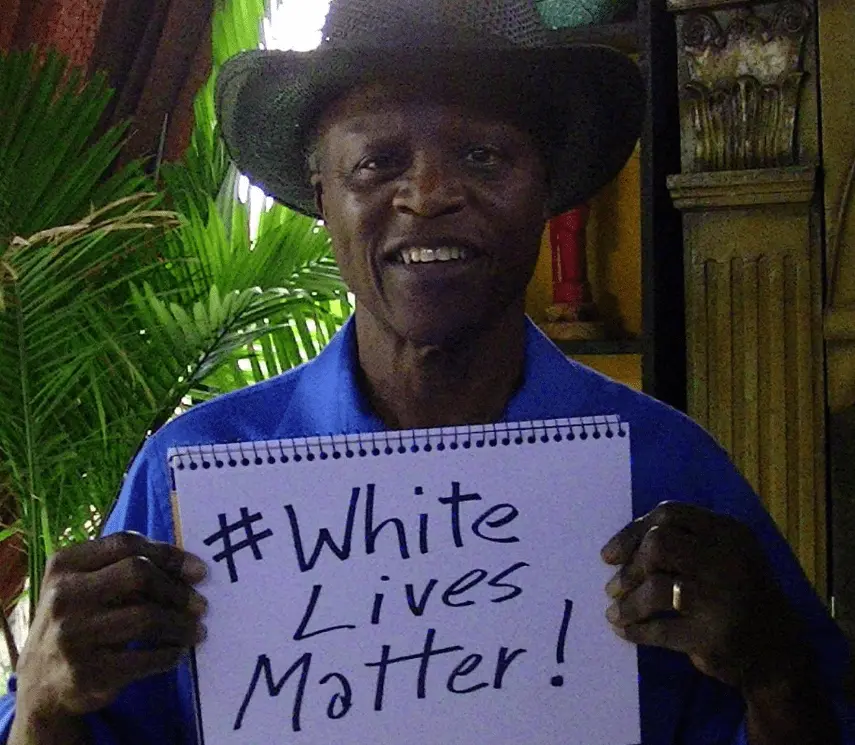 #White
Lives
Matter!